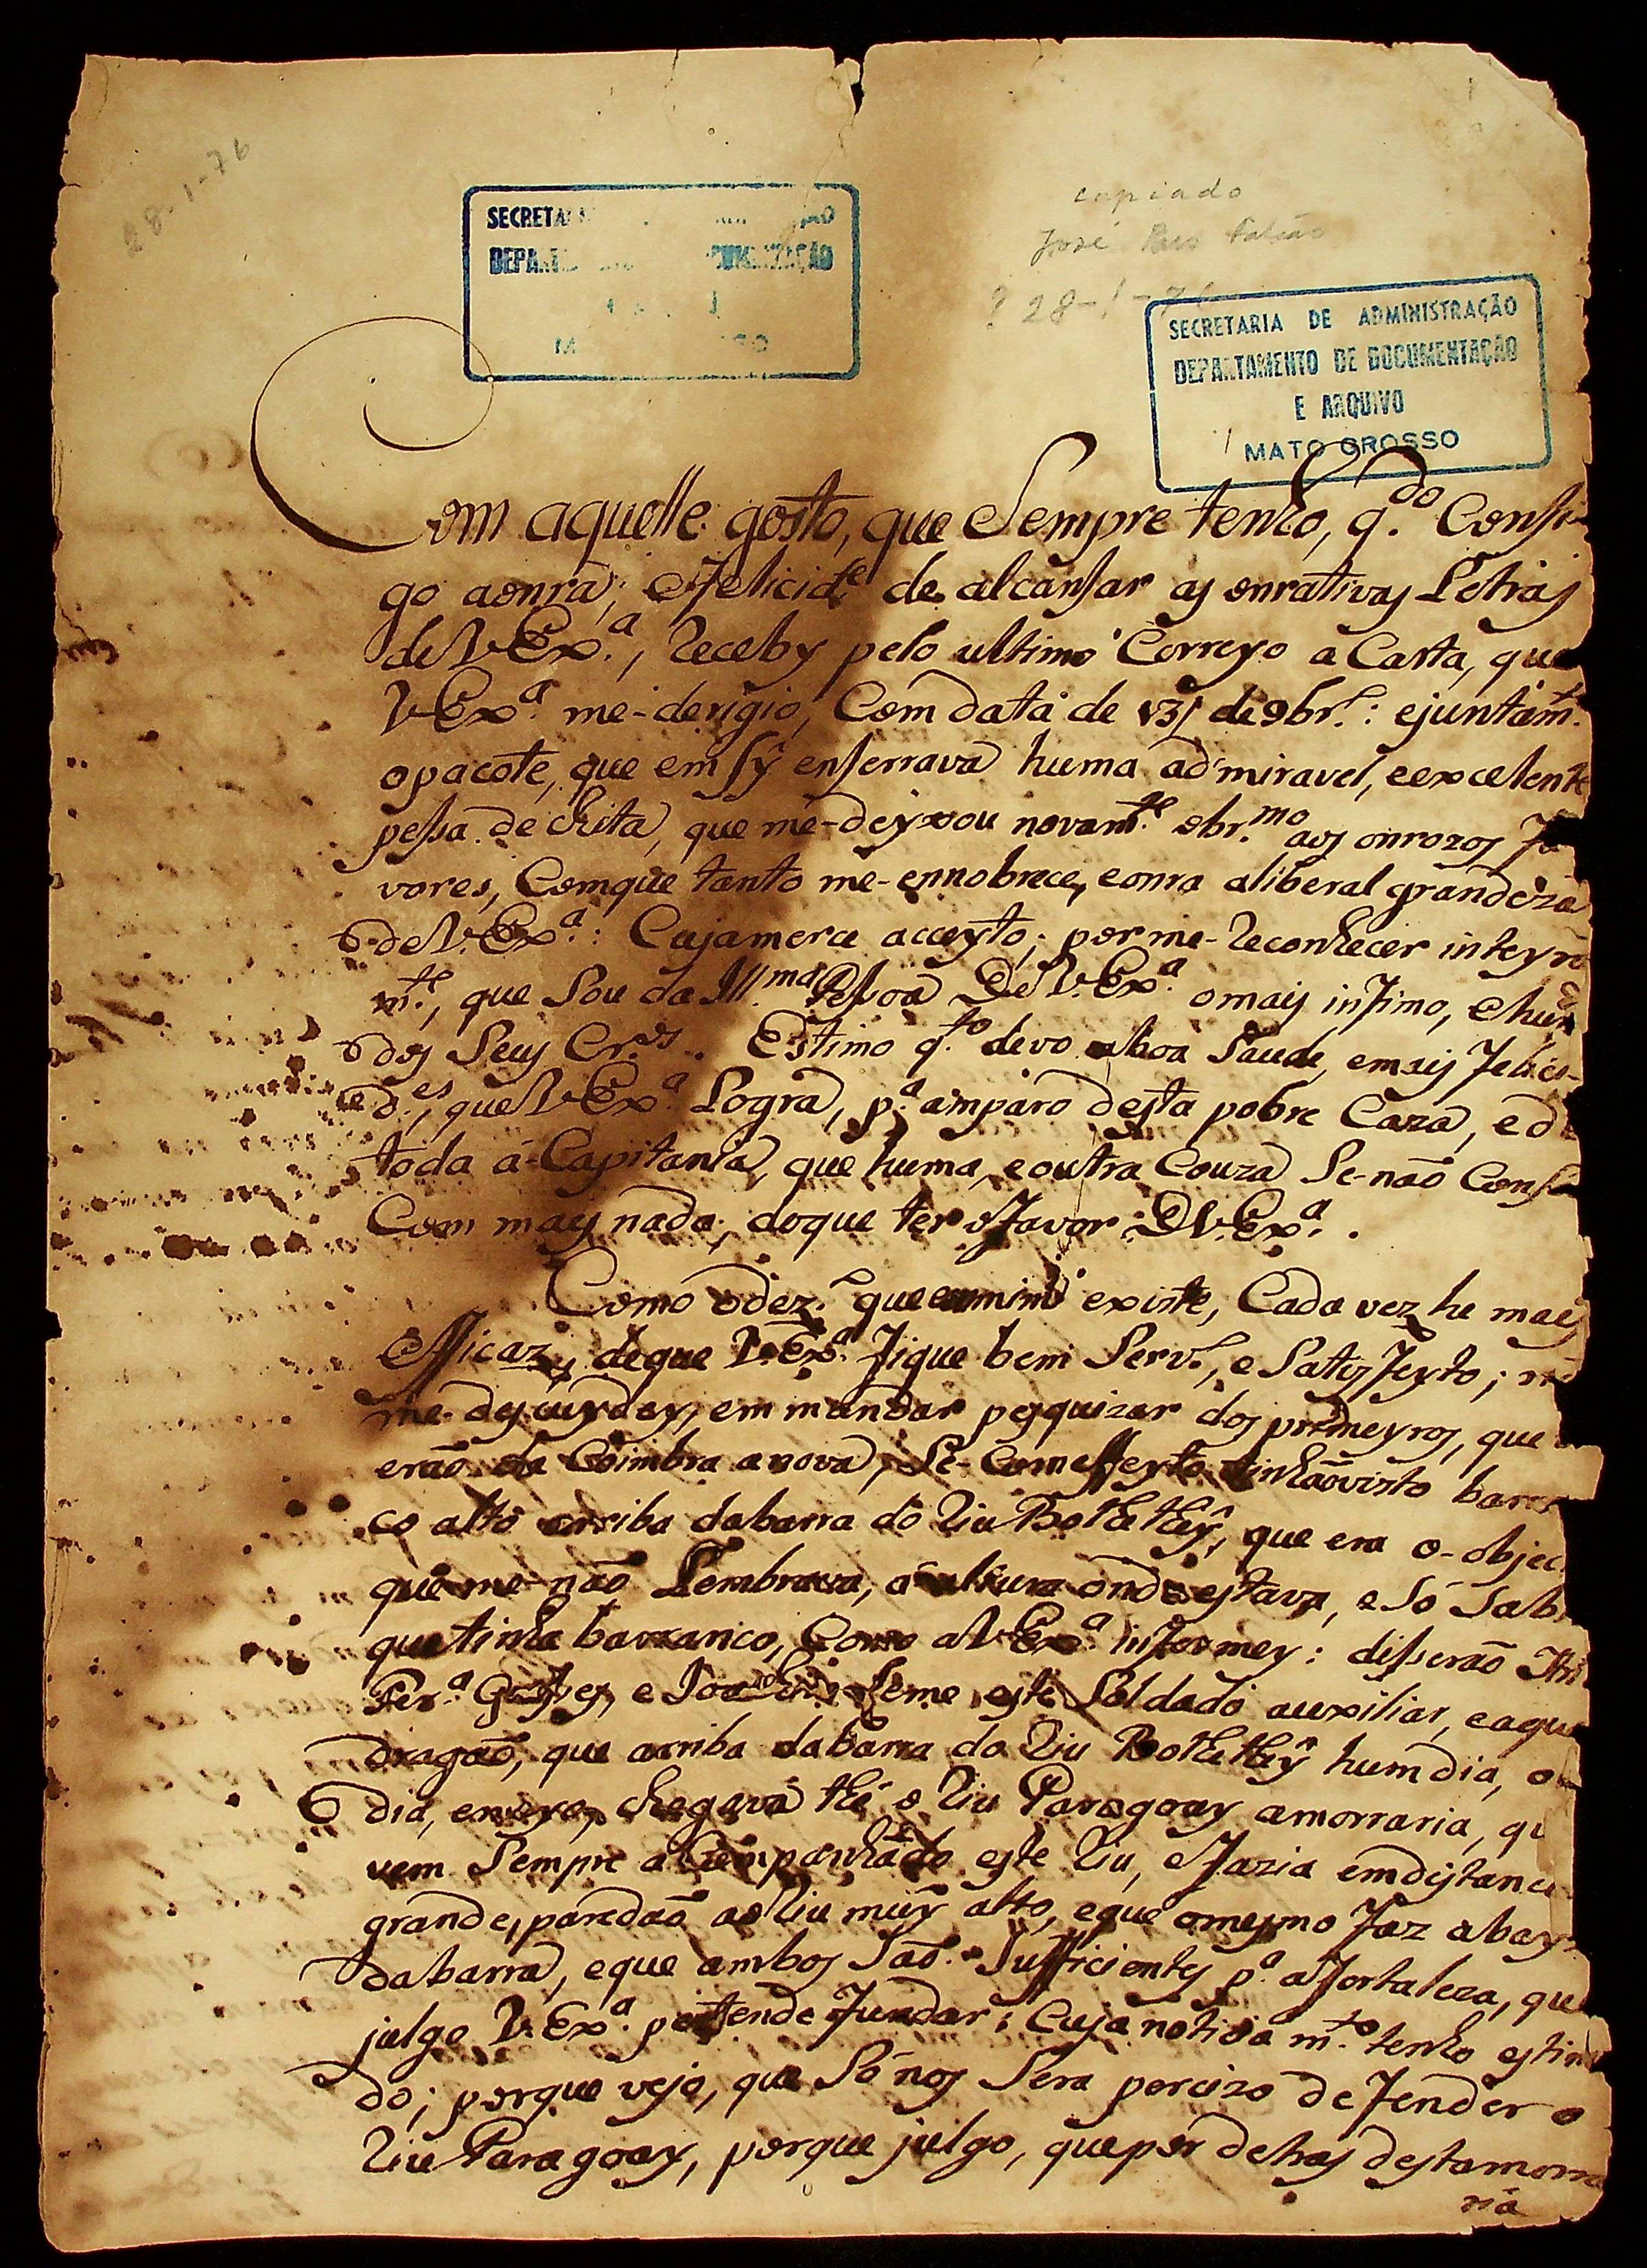 28-1-76
copiado
José
28-1-76
SECRETARIA DE ADMINISTRAÇÃO
DEPARTAMENTO DE DOCUMENTAÇÃO
E ARQUIVO
MATO GROSSO
Com aquelle gosto, que Sempre tenho, q.do Consi-
go aonra, e felicid.e de alcansar as onrativas Letras
de V Ex.a, receby pelo ultimo Correyo a Carta, que
V Ex.a me-derigio, Com data de 13 de 9br.o: ejuntam.te
opacote, que em sy enserrava huma admiravel, eexcelente
pessa de chita, que me-deyxou novam.te obr.mo aos onrozos Fa
vores, Comque tanto me-ennobrece, eonra aliberal grandeza
de V.Ex.a: Cuja merce acceyto, por me-reconhecer inteyra
m.te, que Sou da Ill.ma Pessoa De V.Ex.a omais infimo, ehum
dos Seus Cr.os. Estimo q.to devo aboa Saude, emais felici-
d.es, que V Ex.a Logra, p.a amparo desta pobre Caza, ede
toda a Capitania, que huma, eoutra Couza Se-não Cons
Com mais nada, doque ter ofavor D V.Ex.a.
Como odez.o que emmim existe, Cada vez he mais
efficaz, deque V.Ex.a fique bem Serv.o, e Satisfeyto;
me-descuydey, em mandar pesquizar dos premeyros, que
erão da Coimbra anova, Se-Comeffeyto tinhão visto barran
co alto arriba dabarra do Riu Bothethey, que era o-objec
que me-não Lembrava, a altura onde estava, e Só Sab
que tinha barranco, Como a V Ex.a informey: disserão
Per.a e Leme, este Soldado auxiliar, eaque
dragão, que arriba dabarra do Riu Bothethey hum dia, o
dia, emeyo, chegava thé o Riu Paragoay amorraria, qu
vem Sempre acompanhado este Riu, e fazia emdistancia
grande, paredão aoRiu muy alto, eque omesmo faz abayx
dabarra, eque ambos São Sufficientes p.a afortaleza, que
julgo V.Ex.a pertende fundar; Cuja noticia m.to tenho estima
do; porque vejo, que Só nos Sera percizo defender o
Riu Paragoay, porque julgo, quepor detras destamorra
ria